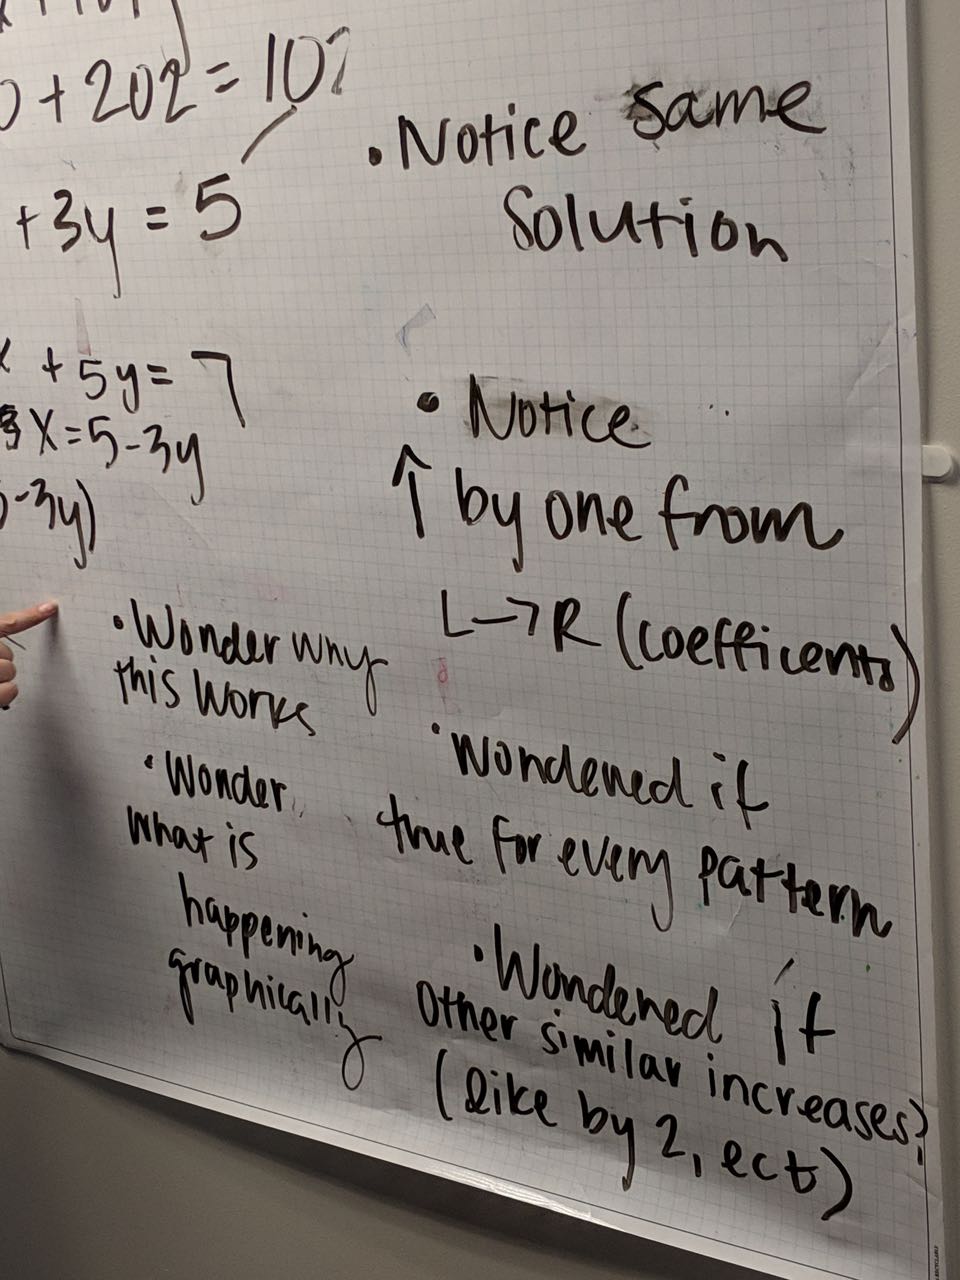 + 202 = 10?
+3y = 5
+ 5y = 7
X = 5-3y
-3y)
• Notice same
Solution
• Notice
↑ by one from
L→R (coefficents)
• Wondened if
true for every pattern
• Wondened if
other similar increases?
(like by 2, ect)
• Wonder why
this works
• Wonder
what is
happening
graphically